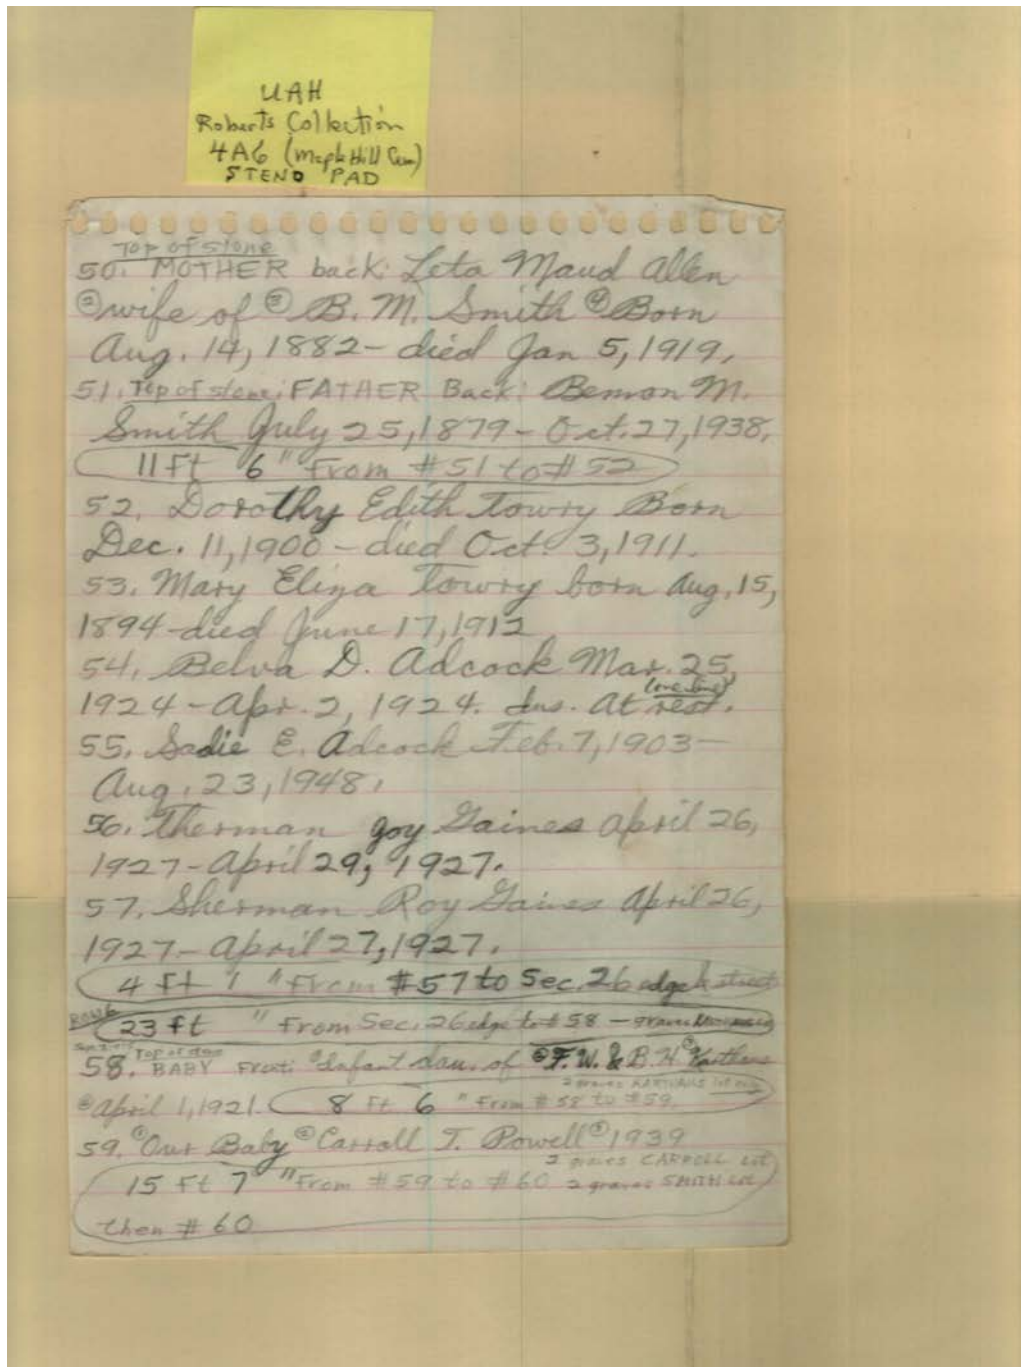 UAH
Roberts Collection
4A6 (Maple Hill Cem)
STENO PAD
Top of stone
50. MOTHER back: Leta Maud Allen
② wife of ③ B. M. Smith ④ Born
Aug. 14, 1882 - died Jan 5, 1919.
51. Top of stone: FATHER Back: Bemon M.
Smith July 25, 1879 - Oct. 27, 1938.
11 Ft 6" From #51 to #52
52. Dorothy Edith Towry Born
Dec. 11, 1900 - died Oct. 3, 1911.
53. Mary Eliza Towry born Aug. 15,
1894 - died June 17, 1912
54. Belva D. Adcock Mar. 25,
1924 - Apr. 2, 1924. Ins. At rest. (one line)
55. Sadie E. Adcock Feb. 7, 1903 -
Aug. 23, 1948.
56. Therman goy Gaines April 26,
1927 - April 29, 1927.
57. Sherman Roy Gaines April 26,
1927 - April 27, 1927.
4 Ft 1" From #57 to Sec. 26 edge & street
ROW 6
23 Ft " From Sec. 26 edge to #58 - graves
Top of stone
58. BABY Front: ① Infant dau. of ② F. W. & B. H. ③
④ April 1, 1921. 8 Ft 6" From #58 to #59.
2 graves lot only
59. ① Our Baby ② Carroll T. Powell ③ 1939
2 graves CARROLL Lot
15 Ft 7" From #59 to #60 2 graves SMITH Lot
then #60